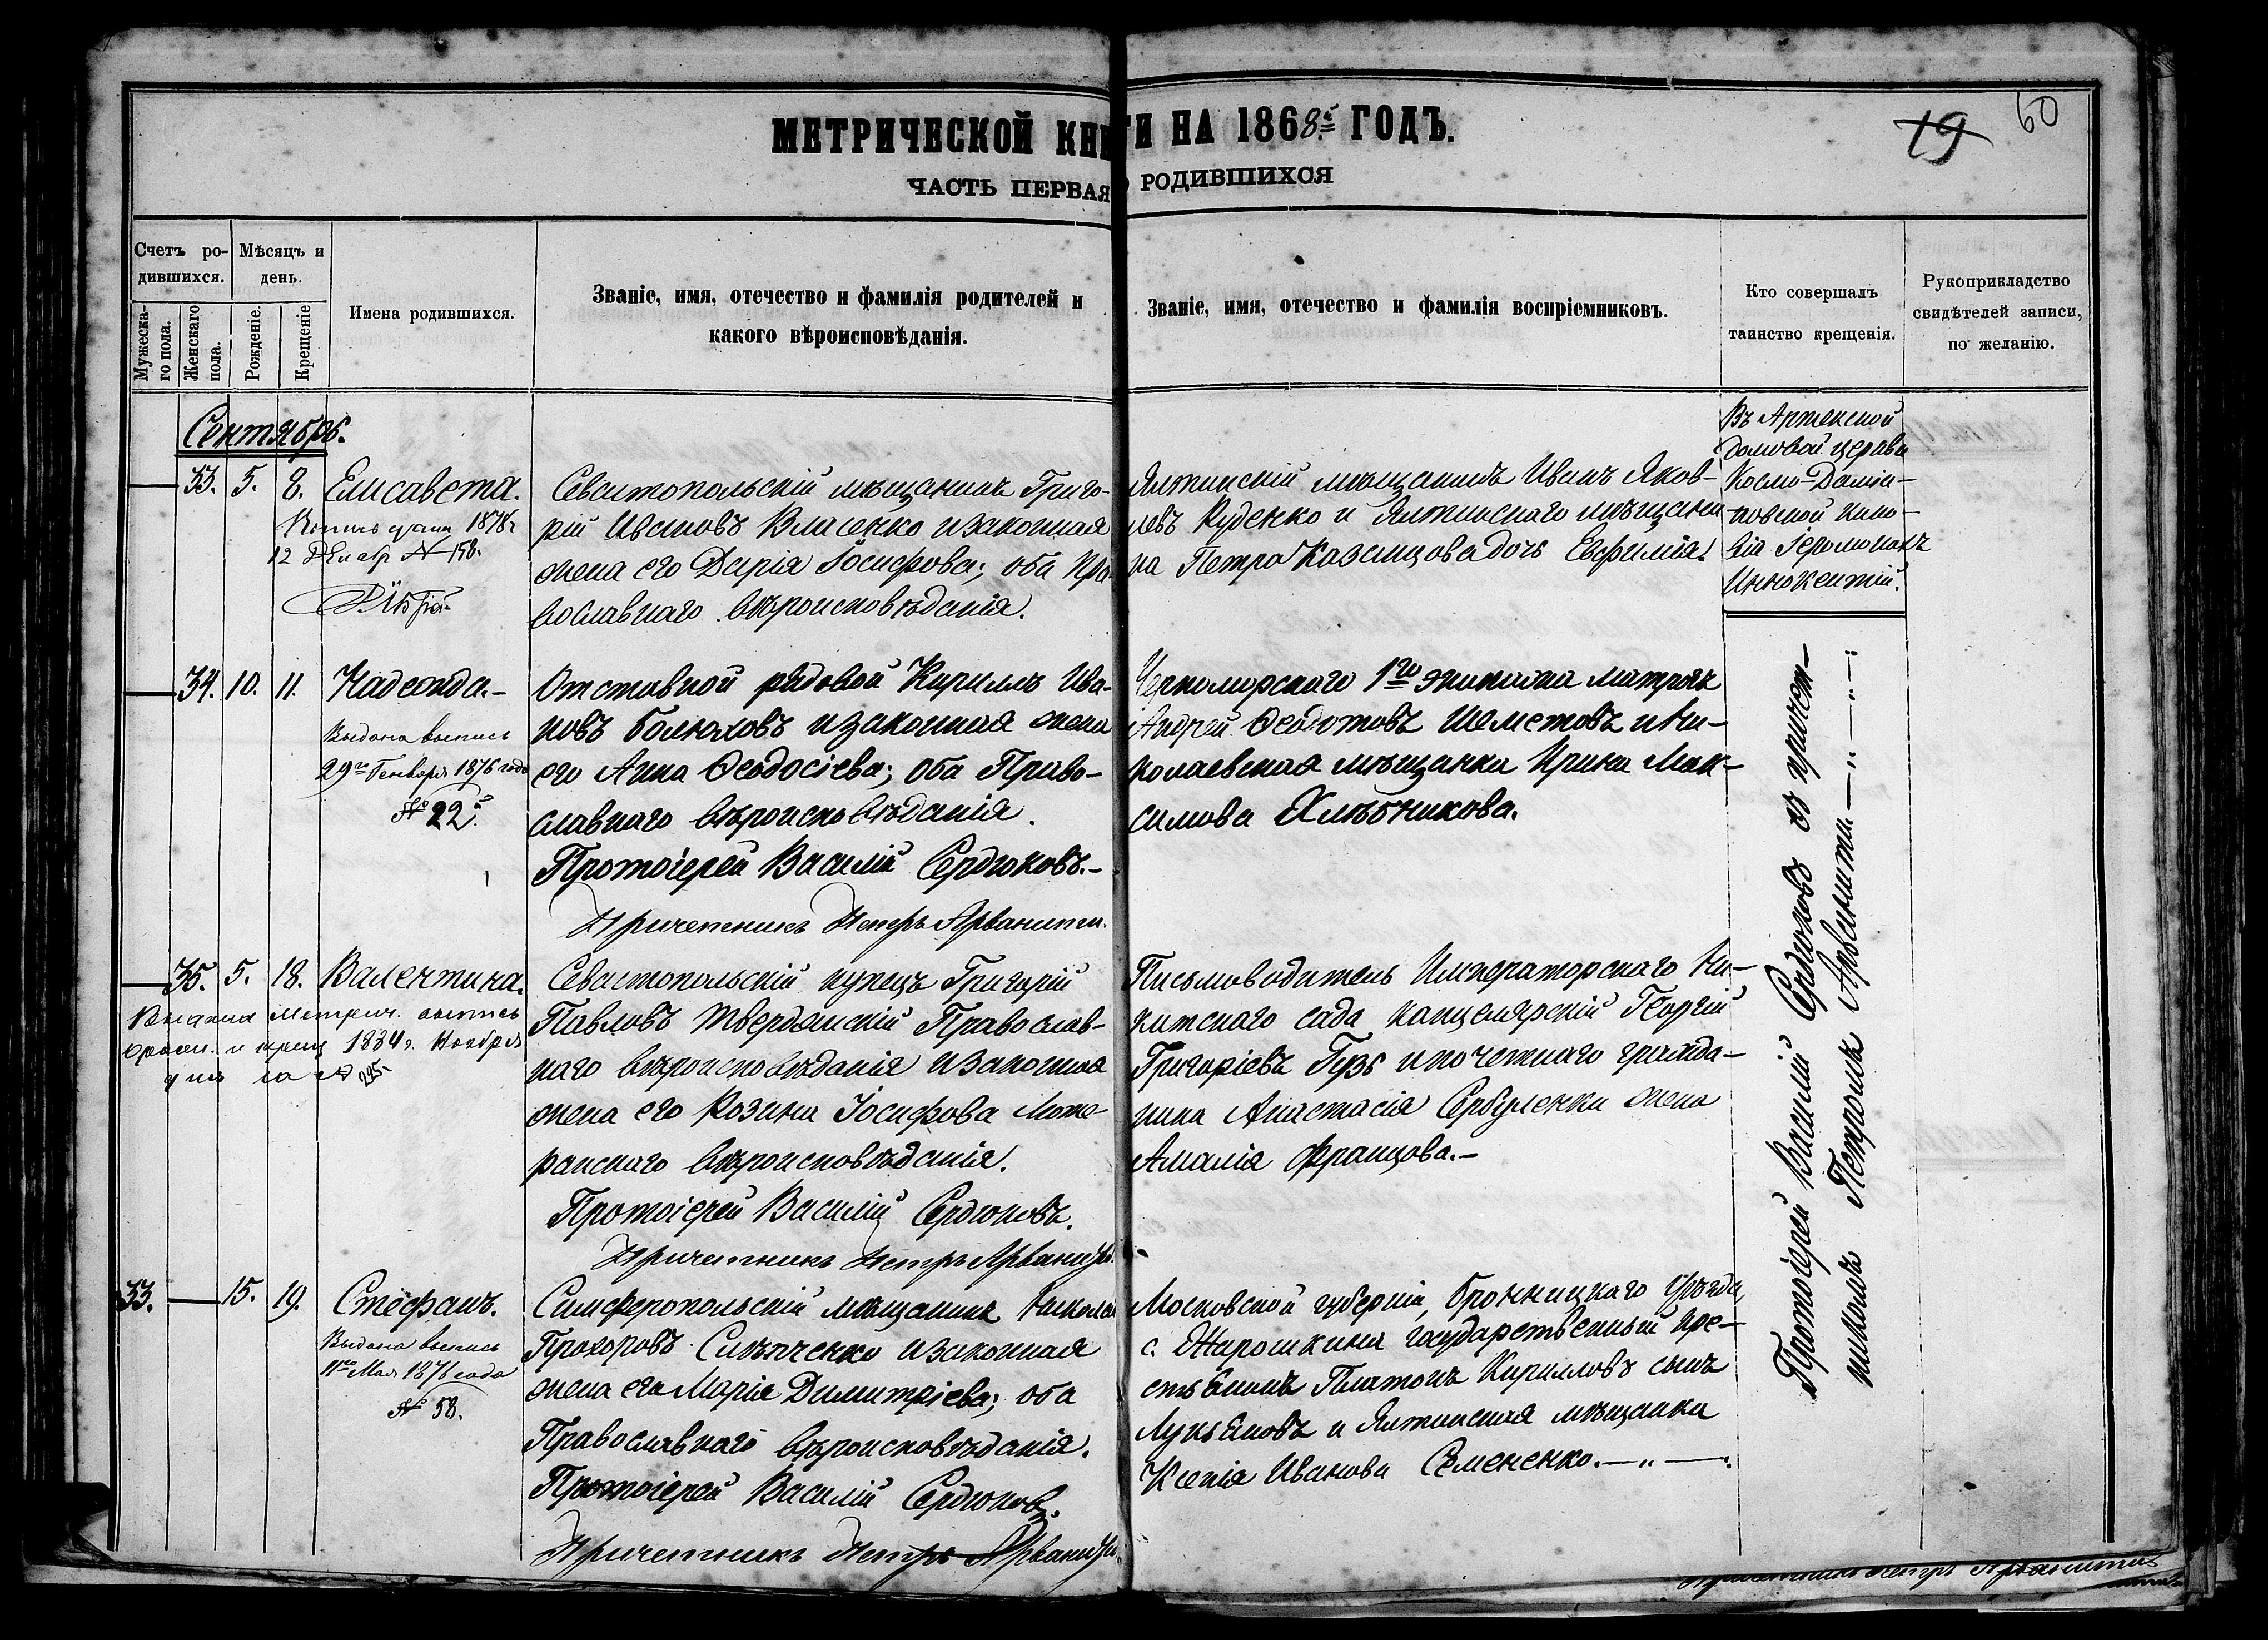 МЕТРИЧЕСКОЙ КНИГИ НА 1868й ГОДЪ.
19 60
ЧАСТЬ ПЕРВАЯ О РОДИВШИХСЯ
Счетъ ро-
дившихся.
Мужеска-
го пола.
Женскаго
пола.
Мѣсяцъ и
день.
Рожденіе.
Крещеніе
Имена родившихся.
Званіе, имя, отечество и фамилія родителей и
какого вѣроисповѣданія.
Званіе, имя, отечество и фамилія воспріемниковъ.
Кто совершалъ
таинство крещенія.
Рукоприкладство
свидѣтелей записи,
по желанію.
Сентябрь.
33. 5. 8. Елисавета.
1878г
12 Декабр № 158.
Севастопольскій мѣщанинъ Григо-
рій Ивановъ Власенко и законная
жена его Дарія Іосифова; оба Пра-
вославнаго вѣроисповѣданія.
Ялтинскій мѣщанинъ Иванъ Яков-
левъ Руденко и Ялтинскаго мѣщани-
на Петра Казанцова дочь Евфимія.
Въ Артекской
домовой церкви
Космо-Даміа-
новской кино-
віи Іеромонахъ
Иннокентій.
34. 10. 11. Надежда.-
Выдана выпись
29го Генваря 1876 года
№ 22й.
Отставной рядовой Кириллъ Ива-
новъ Болюховъ и законная жена
его Анна Ѳеодосіева; оба Право-
славнаго вѣроисповѣданія.
Протоіерей Василій Сердюковъ.-
Причетникъ Петръ Арванити.
Черноморскаго 1го экипажа матрозъ
Андрей Ѳеодотовъ Шеметовъ и Ни-
колаевская мѣщанка Ирина Мак-
симова Хлѣбникова.
35. 5. 18. Валентина.
Выдана метрич. выпись
о рожд. и крещ 1884г. Ноября
дня за № 225.
Севастопольскій купецъ Григорій
Павловъ Твердянскій Православ-
наго вѣроисповѣданія и законная
жена его Розина Іосифова Люте-
ранскаго вѣроисповѣданія.
Протоіерей Василій Сердюковъ.
Причетникъ Петръ Арванити.
Письмоводитель Императорскаго Ни-
китскаго сада канцелярскій Георгій
Григоріевъ Гузь и почетнаго гражда-
нина Анастасія Сербуленки жена
Амалія Францова.-
33. 15. 19. Стефанъ.
Выдана выпись
11го Мая 1876 года
№ 58.
Симферопольскій мѣщанинъ Николай
Прохоровъ Слѣпченко и законная
жена его Марія Димитріева; оба
Православнаго вѣроисповѣданія.
Протоіерей Василій Сердюковъ.
Причетникъ Петръ Арванити
Московской губерніи, Бронницкаго Уѣзда,
с. Жирошкина государственный кре-
стьянинъ Платонъ Кирилловъ сынъ
Лукьяновъ и Ялтинская мѣщанка
Ксенія Иванова Семененко.-"-:
Протоіерей Василій Сердюковъ съ причет-
никомъ Петромъ Арванити.-"-"-:
Причетникъ Петръ Арванити